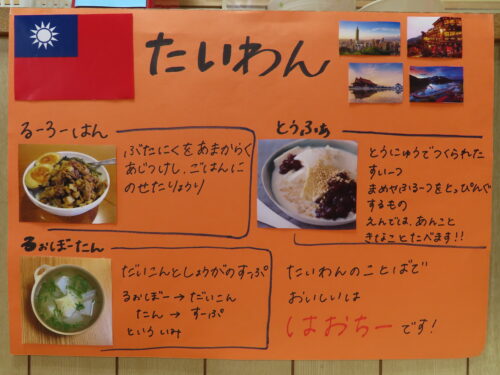 たいわん
るーろーはん
ぶたにくをあまからく
あじつけし、ごはんに
のせたりょうり
とうふぁ
とうにゅうでつくられた
すいーつ
まめやふるーつをとっぴんぐ
するもの
えんでは、あんこと
きなことたべます!!
るおぼーたん
だいこんとしょうがのすっぷ
るおぼー→だいこん
たん→すーぷ
といういみ
たいわんのことばで
おいしいは
はおちーです!